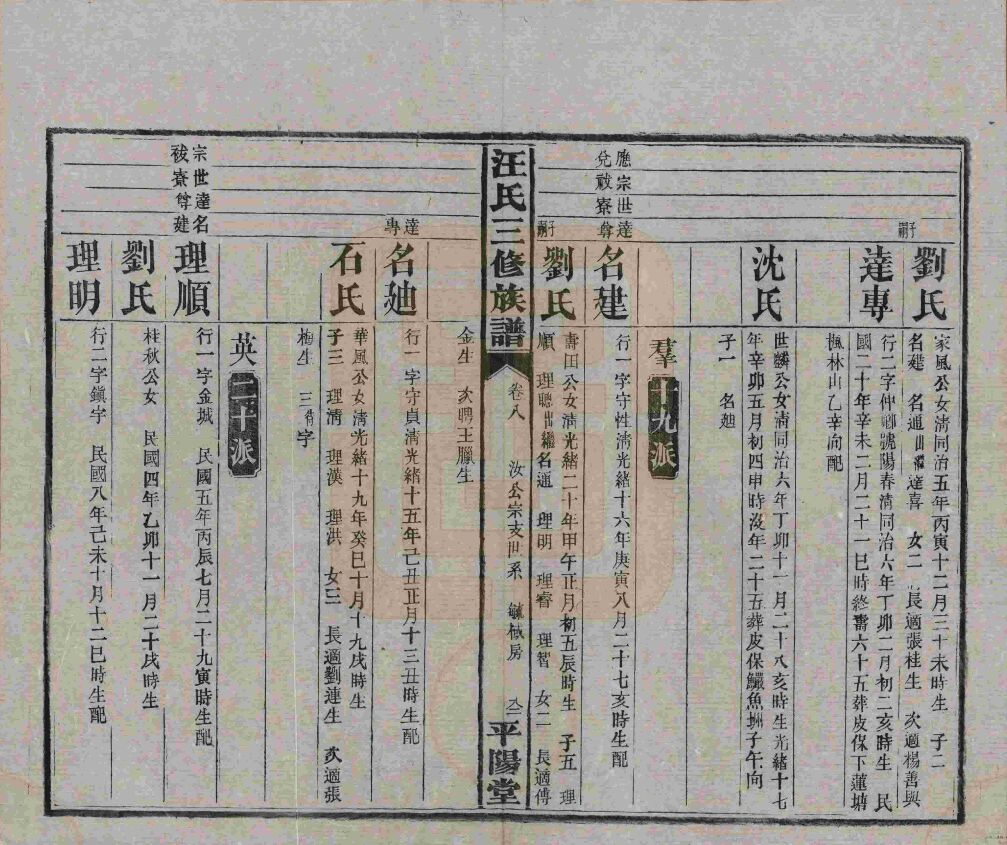 子嗣
劉氏
家風公女清同治五年丙寅十二月三十未時生 子二
名建 名通出繼達喜 女二 長適張桂生 次適楊善與
達專
行二字仲卿號陽春清同治六年丁卯二月初二亥時生 民
國二十年辛未二月二十一巳時終壽六十五葬皮保下蓮塘
楓林山乙辛向配
沈氏
世麟公女清同治六年丁卯十一月二十八亥時生光緒十七
年辛卯五月初四申時沒年二十五葬皮保鱺魚洲子午向
子一 名廸
應宗世達
兌祓寮尊
羣十九派
名建
行一字守性清光緒十六年庚寅八月二十七亥時生配
子嗣
劉氏
壽田公女清光緒二十年甲午正月初五辰時生 子五 理
順 理聰出繼名通 理明 理睿 理智 女二 長適傅
汪氏三修族譜
卷八 汝公宗支世系 毓棫房
平陽堂
金生 次聘王臘生
達專
名廸
行一字守貞清光緒十五年己丑正月十三丑時生配
石氏
華風公女清光緒十九年癸巳十月十九戌時生
子三 理清 理漢 理洪 女三 長適劉連生 次適張
梅生 三待字
英二十派
宗世達名
祓寮尊建
理順
行一字金城 民國五年丙辰七月二十九寅時生配
劉氏
桂秋公女 民國四年乙卯十一月二十戌時生
理明
行二字鎭宇 民國八年己未十月十二巳時生配